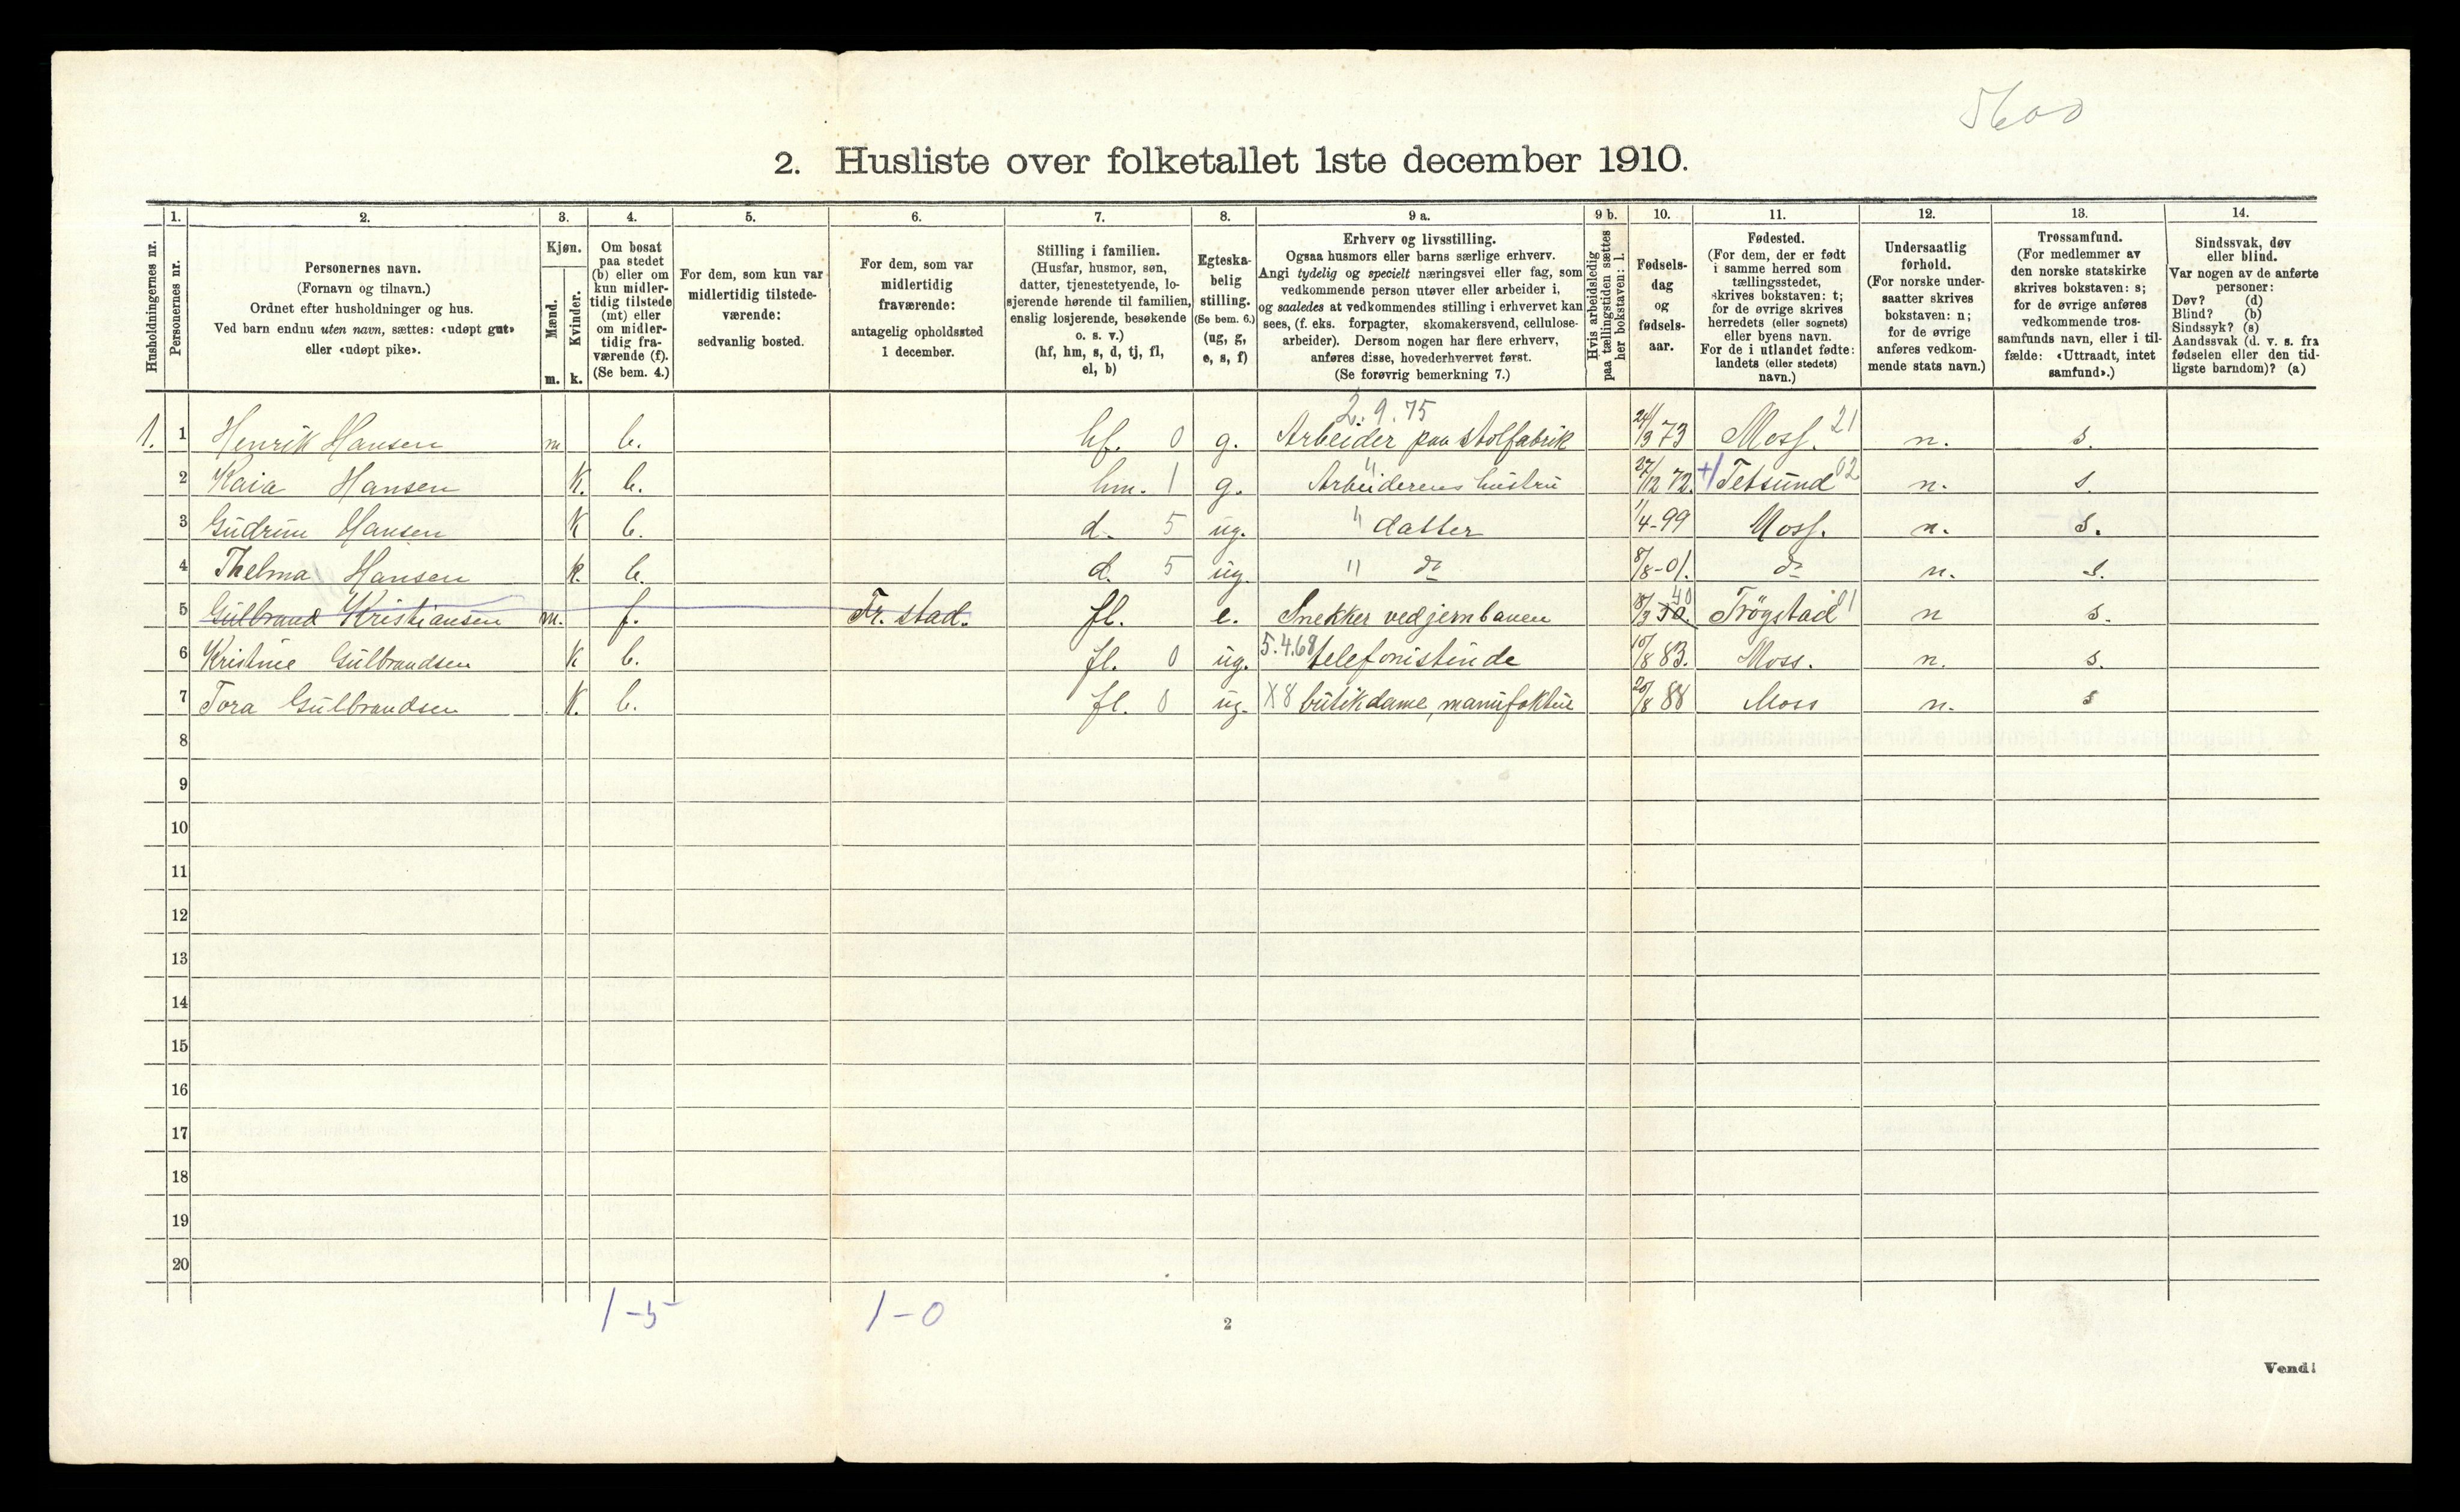 5600
2. Husliste over folketallet 1ste december 1910.
Husholdningernes nr.
1. Personernes nr.
2. Personernes navn.
(Fornavn og tilnavn.)
Ordnet efter husholdninger og hus.
Ved barn endnu uten navn, sættes: «udøpt gut»
eller «udøpt pike».
3. Kjøn.
Mænd. m.
Kvinder. k.
4. Om bosat
paa stedet
(b) eller om
kun midler-
tidig tilstede
(mt) eller
om midler-
tidig fra-
værende (f).
(Se bem. 4.)
5. For dem, som kun var
midlertidig tilstede-
værende:
sedvanlig bosted.
6. For dem, som var
midlertidig
fraværende:
antagelig opholdssted
1 december.
7. Stilling i familien.
(Husfar, husmor, søn,
datter, tjenestetyende, lo-
sjerende hørende til familien,
enslig losjerende, besøkende
o. s. v.)
(hf, hm, s, d, tj, fl,
el, b)
8. Egteska-
belig
stilling.
(Se bem. 6.)
(ug, g,
e, s, f)
9 a. Erhverv og livsstilling.
Ogsaa husmors eller barns særlige erhverv.
Angi tydelig og specielt næringsvei eller fag, som
vedkommende person utøver eller arbeider i,
og saaledes at vedkommendes stilling i erhvervet kan
sees, (f. eks. forpagter, skomakersvend, cellulose-
arbeider). Dersom nogen har flere erhverv,
anføres disse, hovederhvervet først.
(Se forøvrig bemerkning 7.)
9 b. Hvis arbeidsledig
paa tællingstiden sættes
her bokstaven: l.
10. Fødsels-
dag
og
fødsels-
aar.
11. Fødested.
(For dem, der er født
i samme herred som
tællingsstedet,
skrives bokstaven: t;
for de øvrige skrives
herredets (eller sognets)
eller byens navn.
For de i utlandet fødte:
landets (eller stedets)
navn.)
12. Undersaatlig
forhold.
(For norske under-
saatter skrives
bokstaven: n;
for de øvrige
anføres vedkom-
mende stats navn.)
13. Trossamfund.
(For medlemmer av
den norske statskirke
skrives bokstaven: s;
for de øvrige anføres
vedkommende tros-
samfunds navn, eller i til-
fælde: «Uttraadt, intet
samfund».)
14. Sindssvak, døv
eller blind.
Var nogen av de anførte
personer:
Døv? (d)
Blind? (b)
Sindssyk? (s)
Aandssvak (d. v. s. fra
fødselen eller den tid-
ligste barndom)? (a)
2.9.75
1. 1 Henrik Hansen m b. hf. 0 g. Arbeider paa stolfabrik 24/3 73 Moss. 21 n. s.
2 Kaia Hansen K. b. hm. 1 g. Arbeiderens hustru 27/12 72. Tetsund 02 n. s.
3 Gudrun Hansen K b. d. 5 ug. " datter 1/4-99 Moss. n. s.
4 Thelma Hansen k. b. d. 5 ug. " do 8/8-01. do n. s.
5 Gulbrand Kristiansen m. f. Fr. stad. fl. e. Snekker ved jernbanen 18/3 40 Trögstad 01 n s.
6 Kristine Gulbrandsen K b. fl. 0 ug. 5.4.68 telefonistinde 10/8 83. Moss. n. s.
7 Tora Gulbrandsen K. b. fl. 0 ug. X8 butikdame, manufaktur 20/8 88 Moss n. s
8
9
10
11
12
13
14
15
16
17
18
19
20
1-5 1-0
2
Vend!